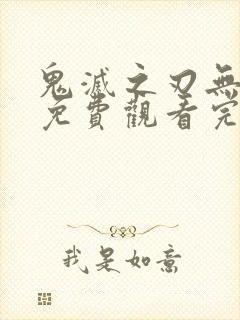 鬼滅之刃無
免費觀看完
我是如意